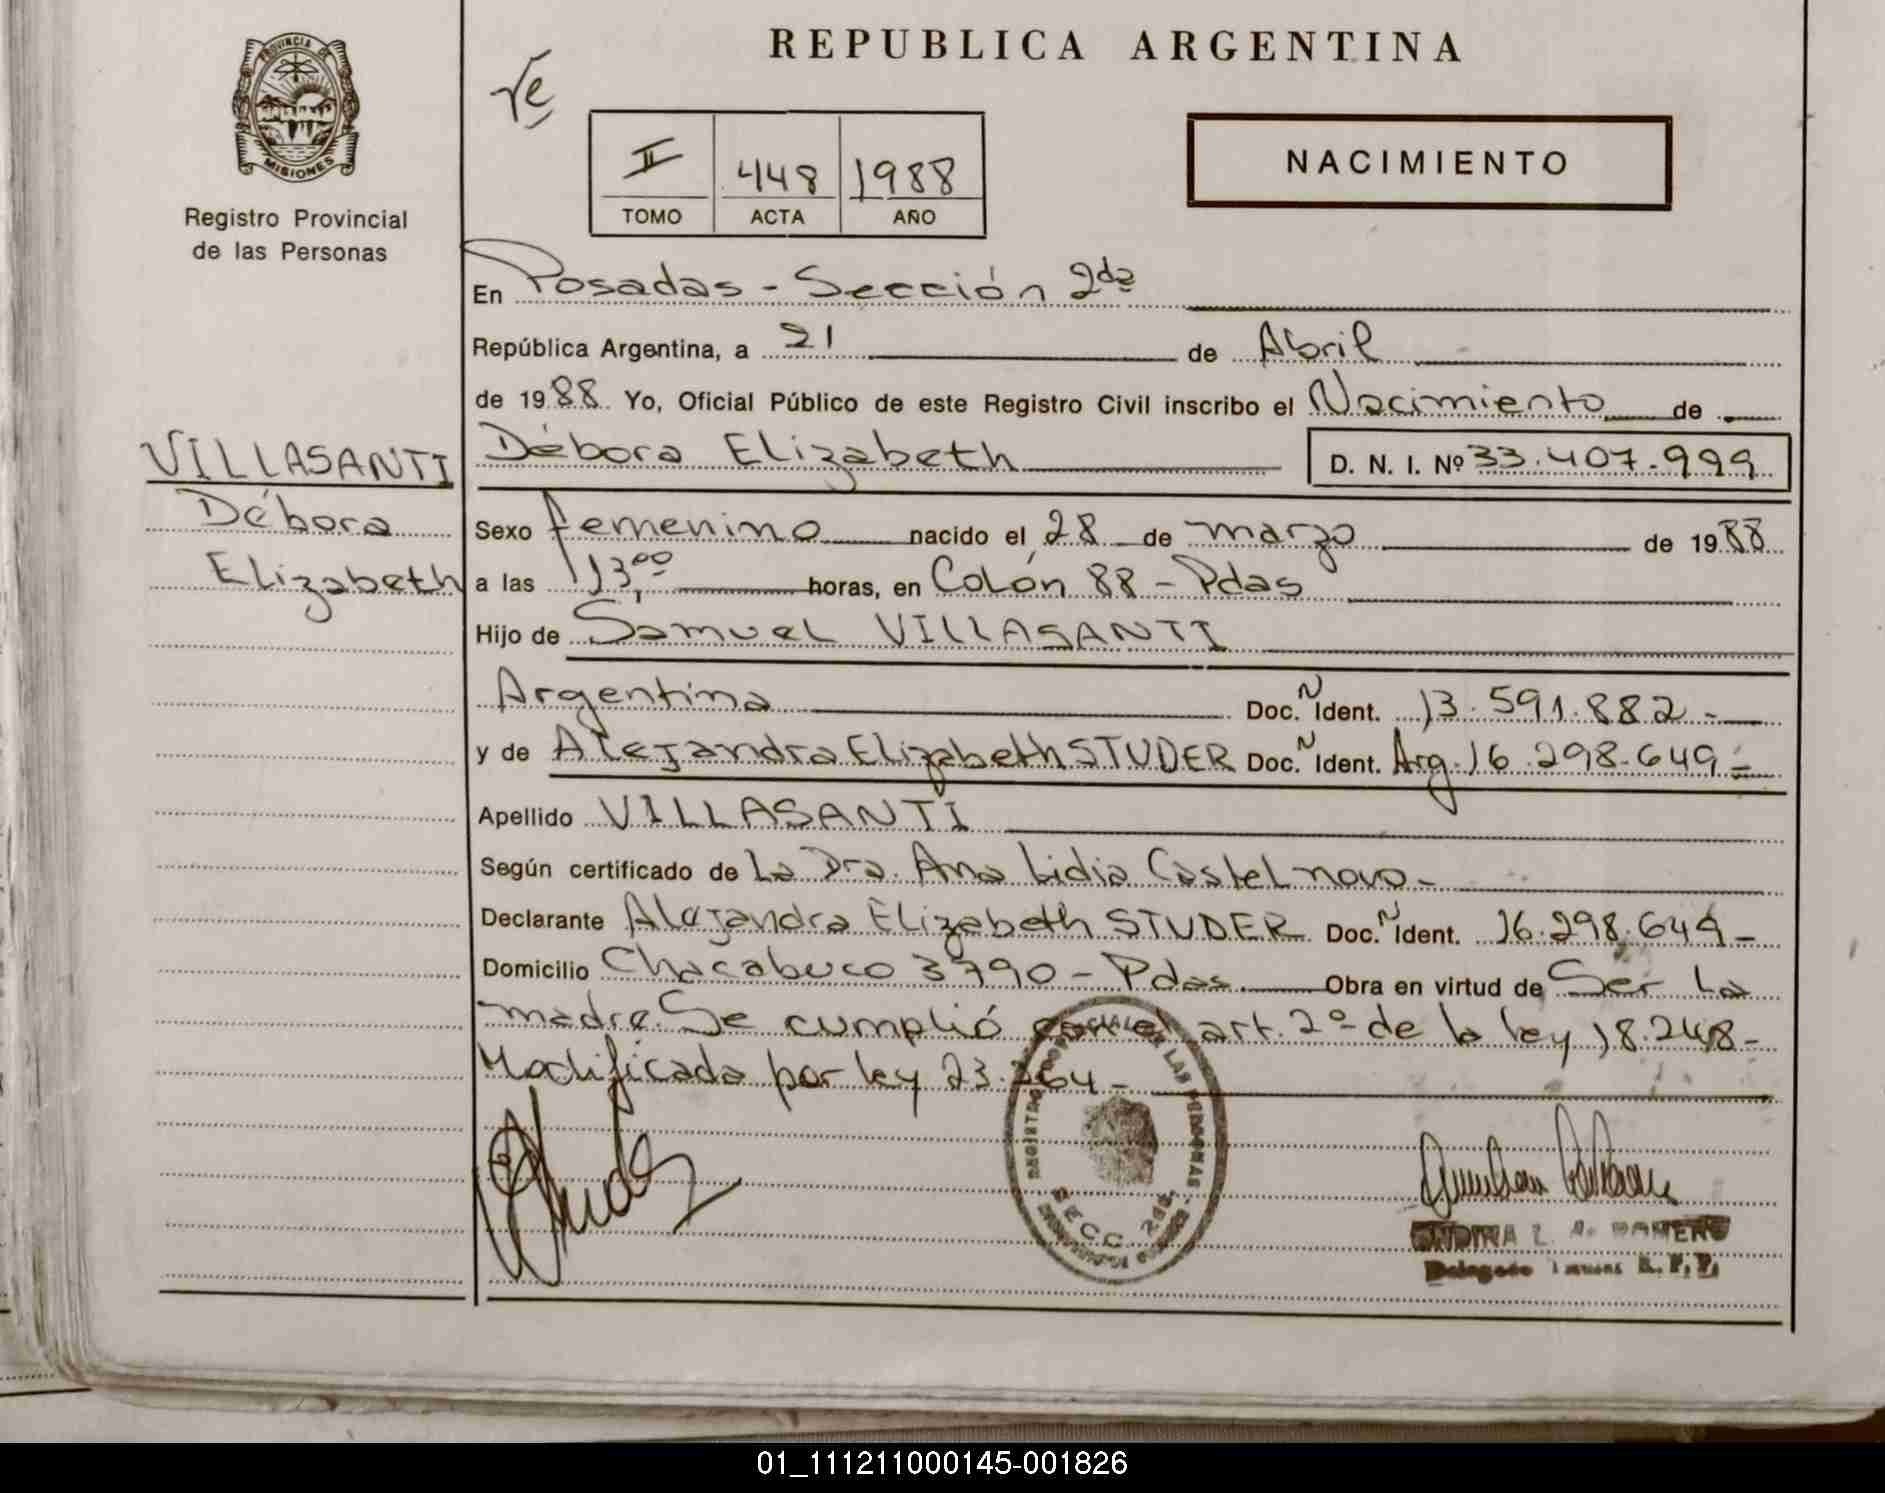 REPUBLICA ARGENTINA
PROVINCIA DE
MISIONES
Registro Provincial
de las Personas
II 448 1988
TOMO ACTA AÑO
NACIMIENTO
En Posadas - Sección 2da
República Argentina, a 21 de Abril
de 1988 Yo, Oficial Público de este Registro Civil inscribo el Nacimiento de
VILLASANTI
Débora
Elizabeth
Débora Elizabeth D. N. I. Nº 33.407.999
Sexo femenino nacido el 28 de marzo de 1988
a las 13,00 horas, en Colón 88 - Pdas
Hijo de Samuel VILLASANTI
Argentina Doc. Ñ Ident. 13.591.882 -
y de Alejandra Elizabeth STUDER Doc. Ñ Ident. Arg. 16.298.649 =
Apellido VILLASANTI
Según certificado de La Dra. Ana Lidia Castelnovo -
Declarante Alejandra Elizabeth STUDER Doc. Ñ Ident. 16.298.649 -
Domicilio Chacabuco 3790 - Pdas. Obra en virtud de Ser La
madre. Se cumplió con el art. 2º de la ley 18.248 -
Modificada por ley 23.264 -
SECC. 2da
01_111211000145-001826